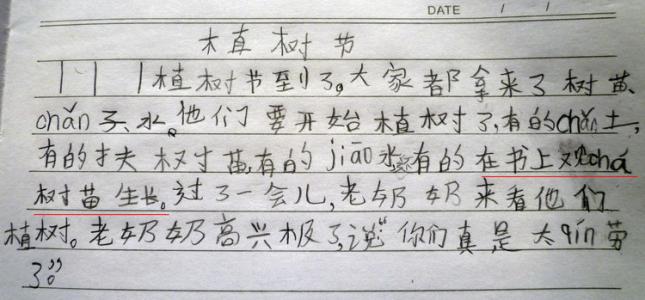 DATE / /
植树节
植树节到了。大家都拿来了树苗、
chǎn子、水。他们要开始植树了,有的chǎn土,
有的扶树苗,有的jiāo水,有的在书上观chá
树苗生长。过了一会儿,老奶奶来看他们
植树。老奶奶高兴极了,说“你们真是太qín劳
了。”